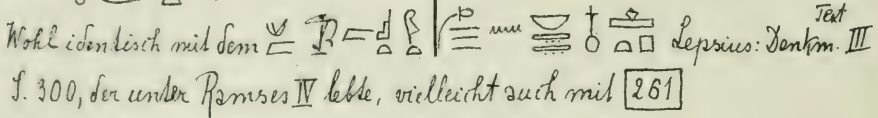 Wohl identisch mit dem Lepsius: Denkm. Text III
S. 300, der unter Ramses IV lebte, vielleicht auch mit 261